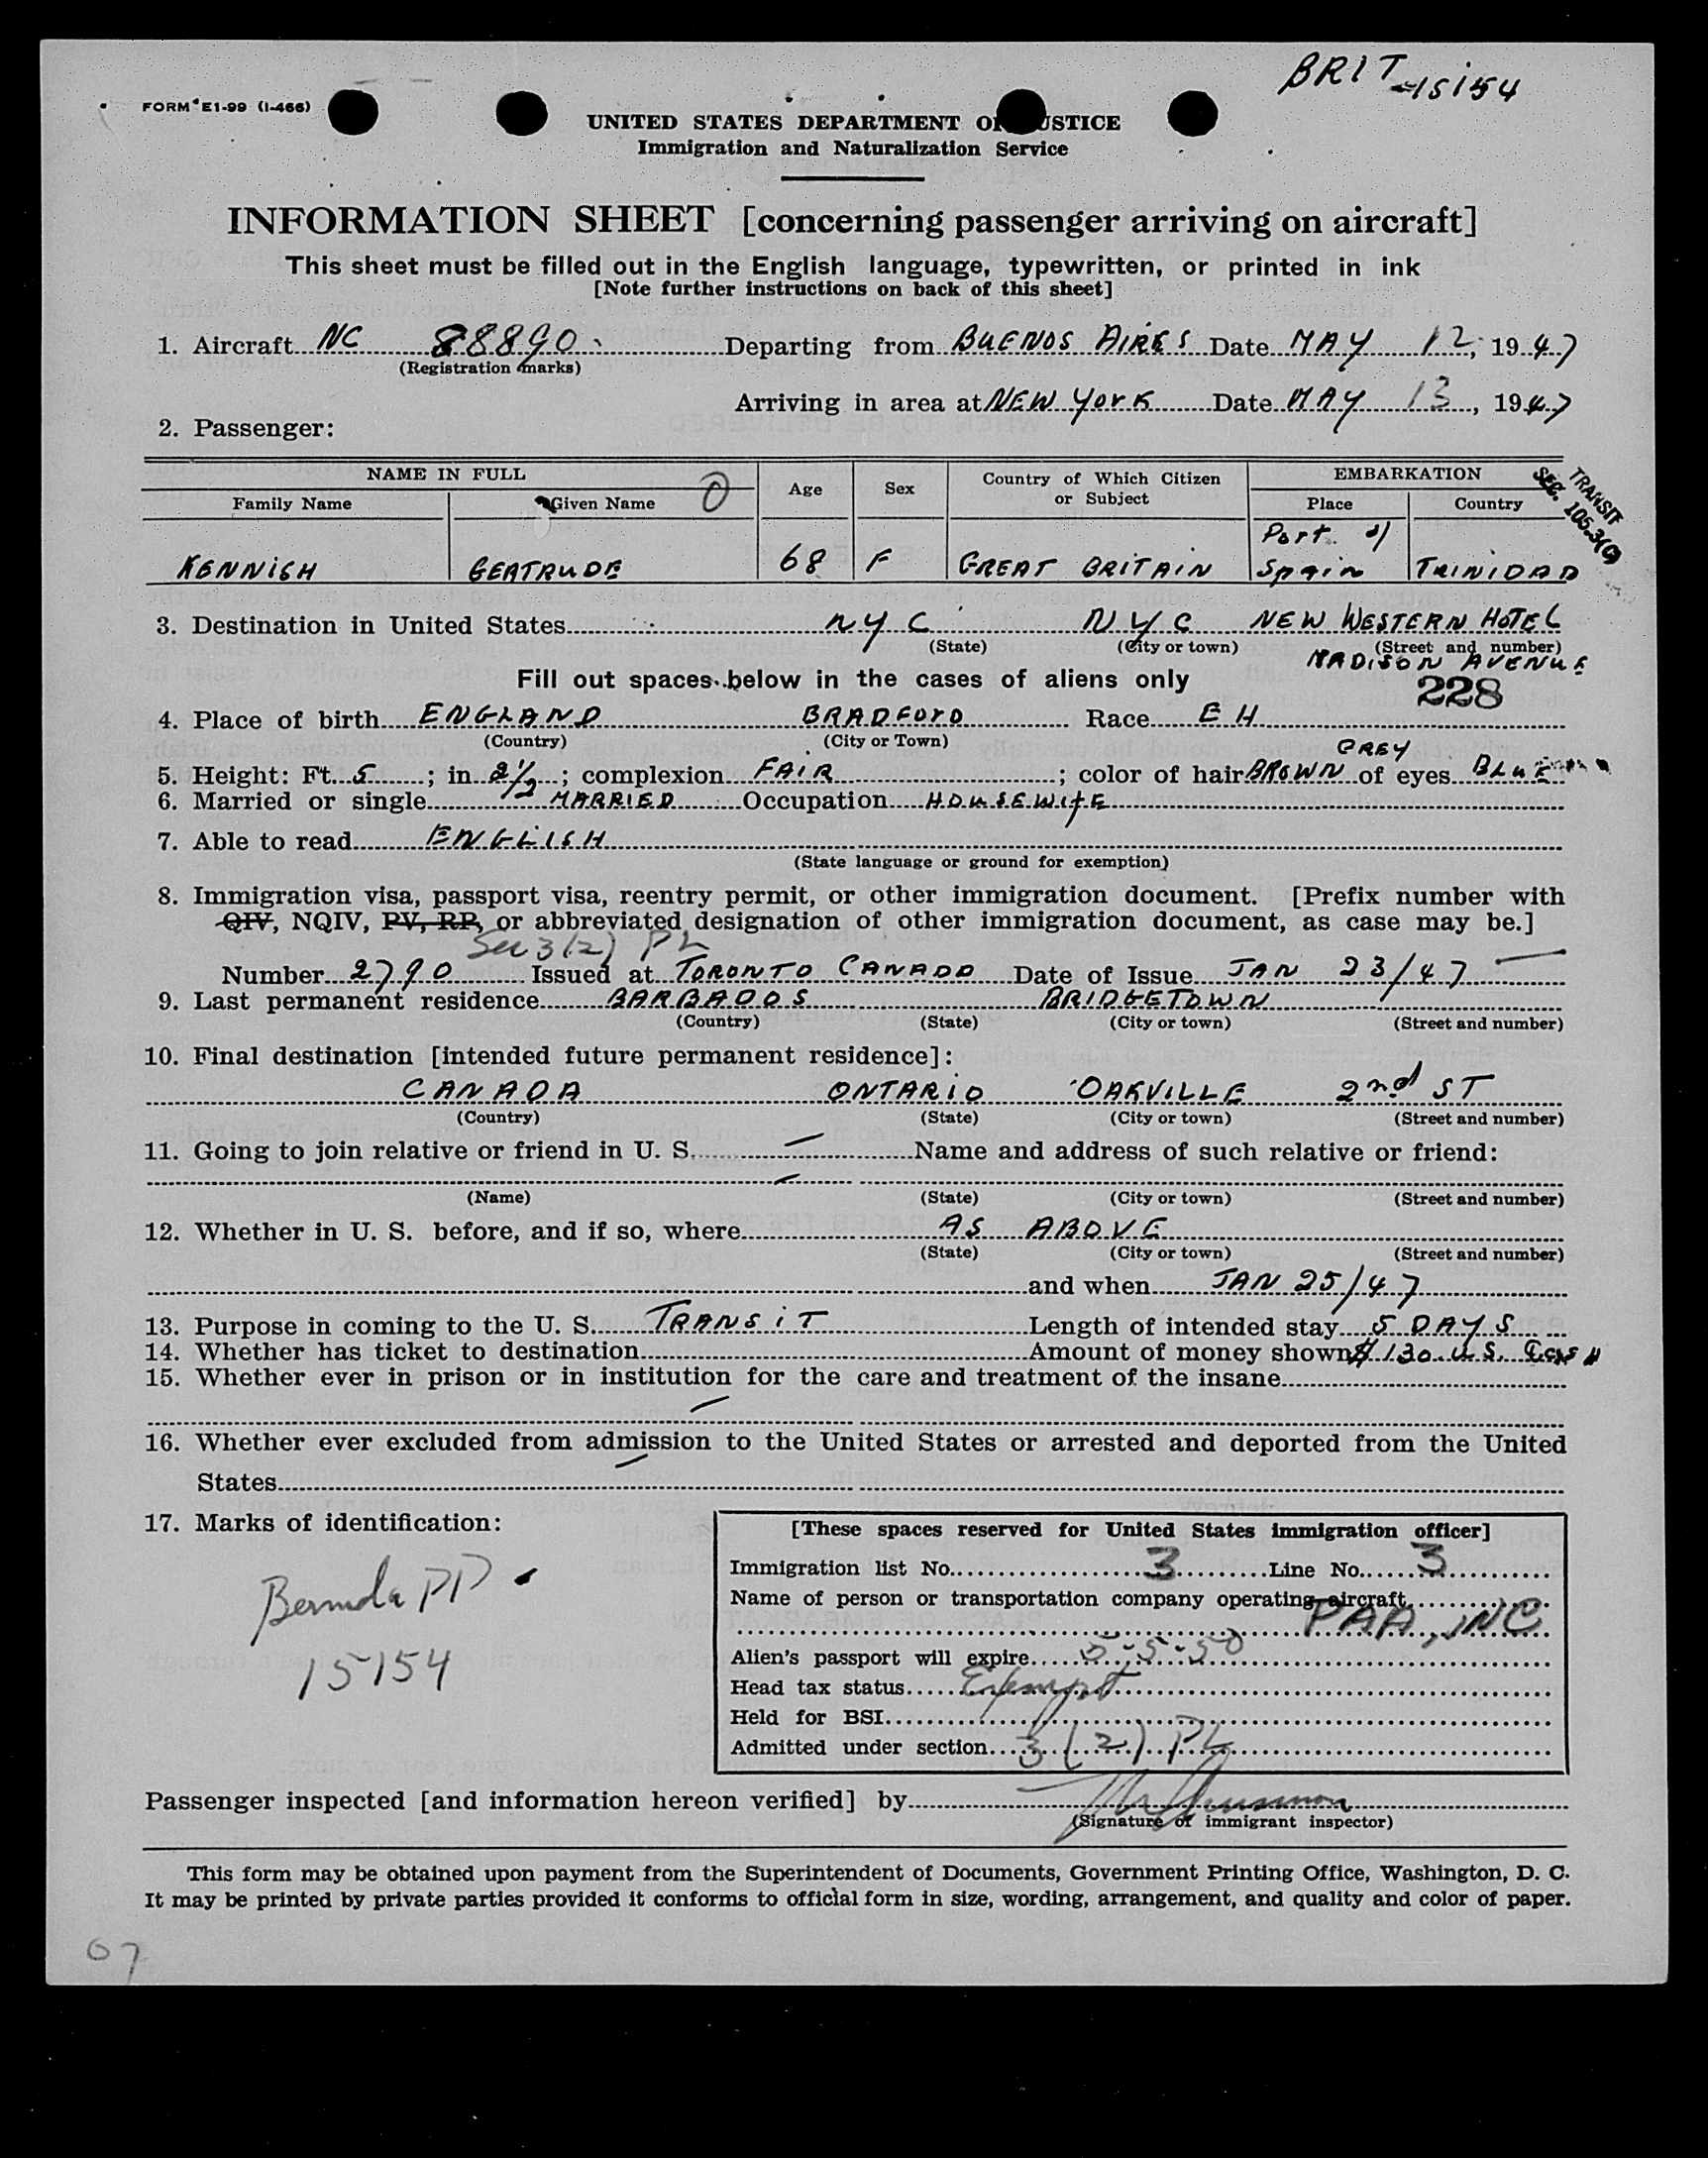 BRIT-15154
FORM E1-99 (I-466)
UNITED STATES DEPARTMENT OF JUSTICE
Immigration and Naturalization Service
INFORMATION SHEET [concerning passenger arriving on aircraft]
This sheet must be filled out in the English language, typewritten, or printed in ink
[Note further instructions on back of this sheet]
1. Aircraft NC 88890 Departing from BUENOS AIRES Date MAY 12, 1947
(Registration marks)
Arriving in area at NEW YORK Date MAY 13, 1947
2. Passenger:
NAME IN FULL Age Sex Country of Which Citizen or Subject EMBARKATION
Family Name Given Name Place Country
TRANSIT
SEC. 105.3(C)
KENNISH GERTRUDE 68 F GREAT BRITAIN Port of Spain TRINIDAD
3. Destination in United States NYC NYC NEW WESTERN HOTEL
(State) (City or town) (Street and number)
MADISON AVENUE
Fill out spaces below in the cases of aliens only
228
4. Place of birth ENGLAND BRADFORD Race EH
(Country) (City or Town)
GREY
5. Height: Ft. 5; in. 2 1/2; complexion FAIR; color of hair BROWN of eyes BLUE
6. Married or single MARRIED Occupation HOUSEWIFE
7. Able to read ENGLISH
(State language or ground for exemption)
8. Immigration visa, passport visa, reentry permit, or other immigration document. [Prefix number with
QIV, NQIV, PV, RP, or abbreviated designation of other immigration document, as case may be.]
Sec 3(2) PL
Number 2790 Issued at TORONTO CANADA Date of Issue JAN 23/47
9. Last permanent residence BARBADOS BRIDGETOWN
(Country) (State) (City or town) (Street and number)
10. Final destination [intended future permanent residence]:
CANADA ONTARIO OAKVILLE 2nd ST
(Country) (State) (City or town) (Street and number)
11. Going to join relative or friend in U. S. — Name and address of such relative or friend:
(Name) (State) (City or town) (Street and number)
12. Whether in U. S. before, and if so, where AS ABOVE
(State) (City or town) (Street and number)
and when JAN 25/47
13. Purpose in coming to the U. S. TRANSIT Length of intended stay 5 DAYS
14. Whether has ticket to destination Amount of money shown $130. U.S. CASH
15. Whether ever in prison or in institution for the care and treatment of the insane
—
16. Whether ever excluded from admission to the United States or arrested and deported from the United
States —
17. Marks of identification:
Bermuda PP
15154
[These spaces reserved for United States immigration officer]
Immigration list No. 3 Line No. 3
Name of person or transportation company operating aircraft
PAA, INC
Alien's passport will expire 5-5-50
Head tax status Exempt
Held for BSI
Admitted under section 3(2) PL
Passenger inspected [and information hereon verified] by
(Signature of immigrant inspector)
This form may be obtained upon payment from the Superintendent of Documents, Government Printing Office, Washington, D. C.
It may be printed by private parties provided it conforms to official form in size, wording, arrangement, and quality and color of paper.
07